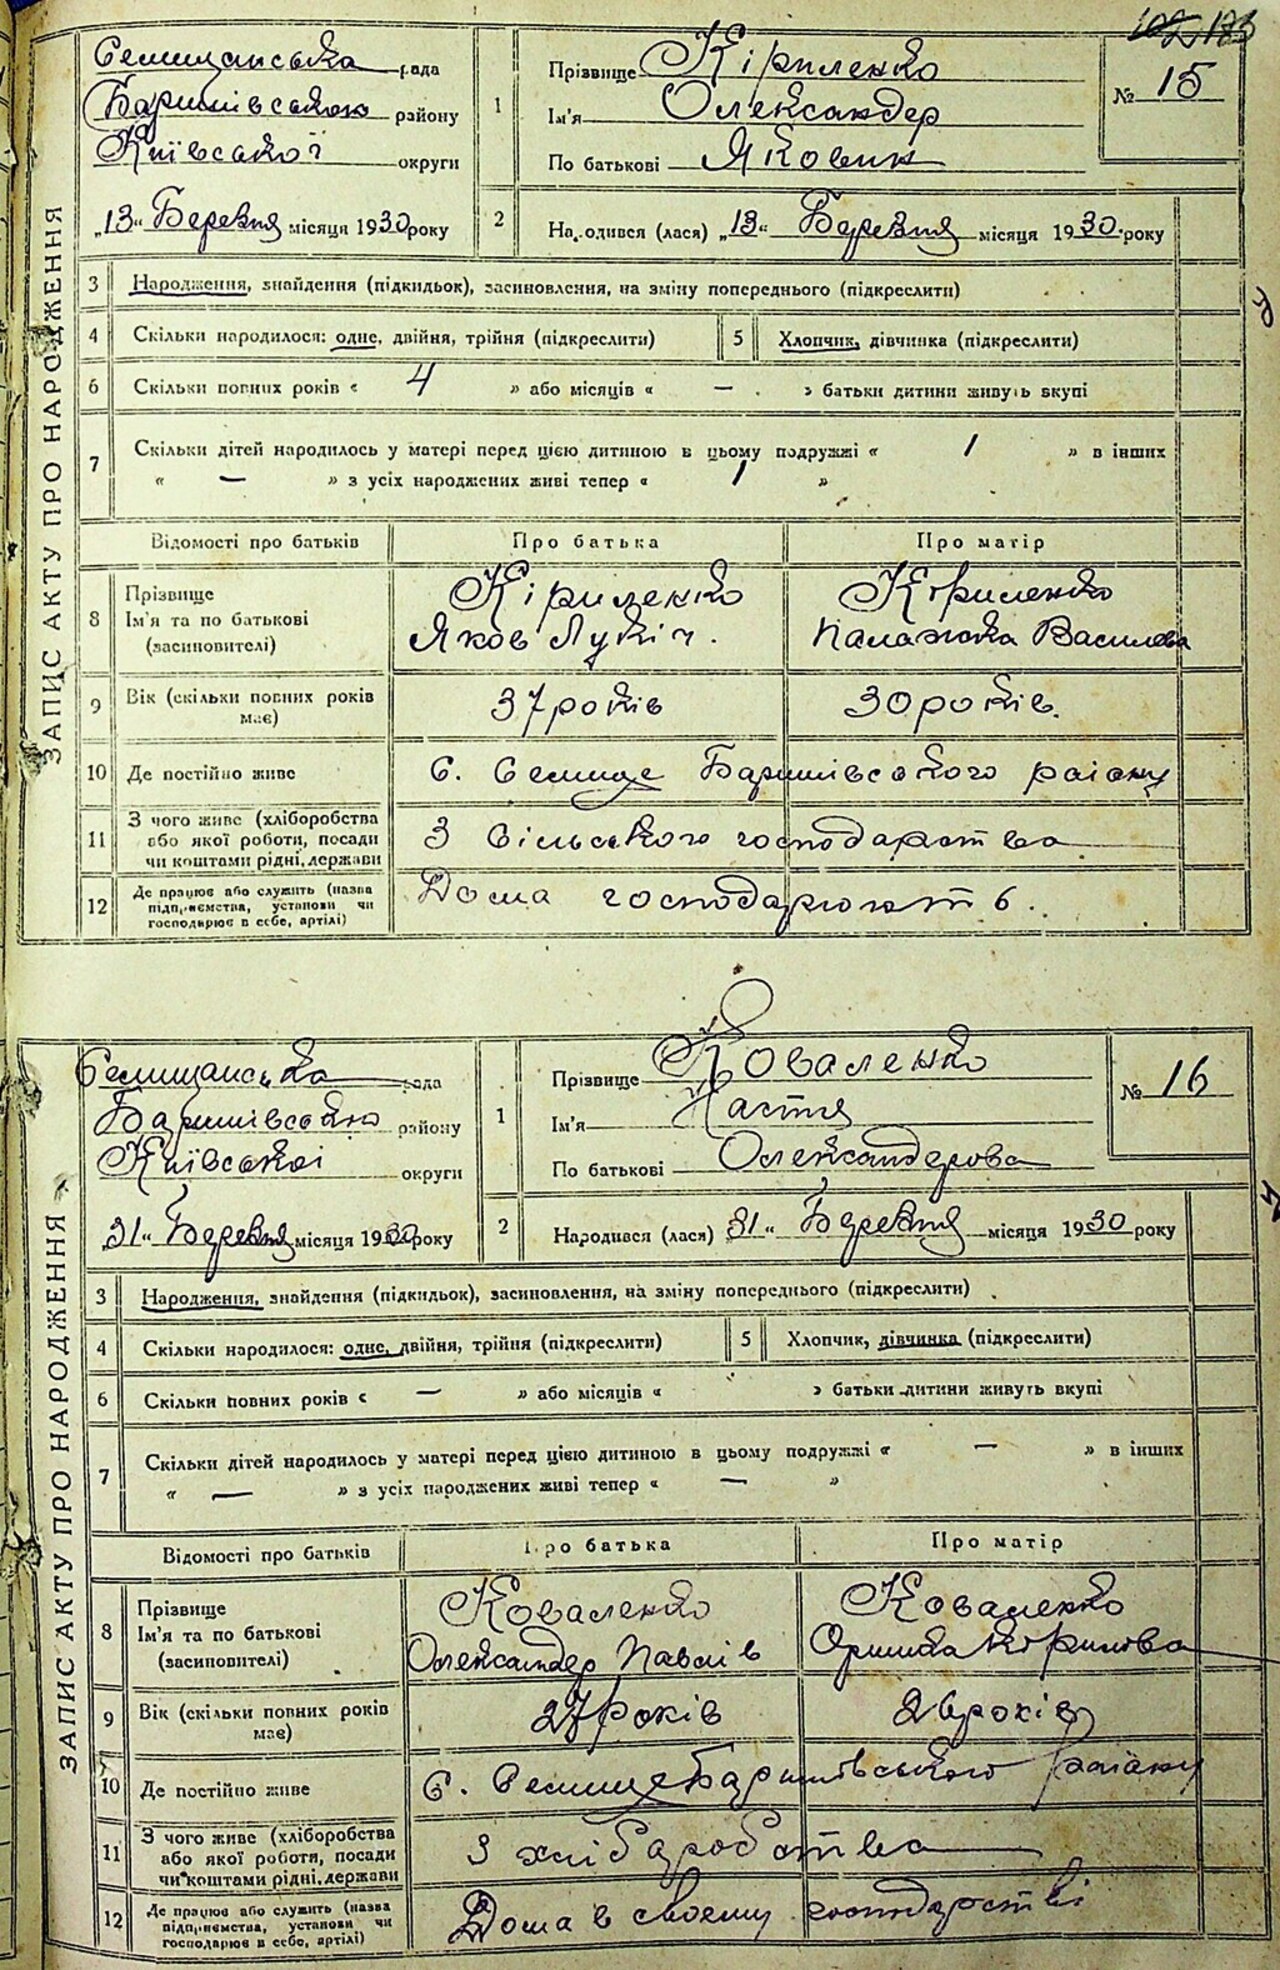 173
ЗАПИС АКТУ ПРО НАРОДЖЕННЯ
Селищанська рада
Баришівською району
Київської округи
„13“ Березня місяця 1930 року
1
Прізвище Кіриленко
Ім'я Олександер
По батькові Якович
№ 15
2
Народився (лася) „13“ Березня місяця 1930 року
3 Народження, знайдення (підкидьок), засиновлення, на зміну попереднього (підкреслити)
4 Скільки народилося: одне, двійня, трійня (підкреслити)
5 Хлопчик, дівчинка (підкреслити)
6 Скільки повних років « 4 » або місяців « — » батьки дитини живуть вкупі
7 Скільки дітей народилось у матері перед цією дитиною в цьому подружжі « 1 » в інших
« — » з усіх народжених живі тепер « 1 »
Відомості про батьків Про батька Про матір
8 Прізвище
Ім'я та по батькові
(засиновителі)
Кіриленко
Яков Лукіч.
Кіриленко
Палажка Василева
9 Вік (скільки повних років має) 37 років 30 років.
10 Де постійно живе С. Селище Баришівського раіону
11 З чого живе (хліборобства
або якої роботи, посади
чи коштами рідні, держави
З Сільського господарства
12 Де працює або служить (назва
підприємства, установи чи
господарює в себе, артілі)
Дома господарюють.
ЗАПИС АКТУ ПРО НАРОДЖЕННЯ
Селищанська рада
Баришівською району
Київської округи
„31“ Березня місяця 1930 року
1
Прізвище Коваленко
Ім'я Настя
По батькові Олександерова
№ 16
2
Народився (лася) „31“ Березня місяця 1930 року
3 Народження, знайдення (підкидьок), засиновлення, на зміну попереднього (підкреслити)
4 Скільки народилося: одне, двійня, трійня (підкреслити)
5 Хлопчик, дівчинка (підкреслити)
6 Скільки повних років « — » або місяців « » батьки дитини живуть вкупі
7 Скільки дітей народилось у матері перед цією дитиною в цьому подружжі « — » в інших
« — » з усіх народжених живі тепер « — »
Відомості про батьків Про батька Про матір
8 Прізвище
Ім'я та по батькові
(засиновителі)
Коваленко
Олександер Павлів
Коваленко
Оришка Кірилова
9 Вік (скільки повних років має) 27 років 26 років
10 Де постійно живе С. Селище Баришівського раіону
11 З чого живе (хліборобства
або якої роботи, посади
чи коштами рідні, держави
З хлібаробства
12 Де працює або служить (назва
підприємства, установи чи
господарює в себе, артілі)
Дома в своєму господарстві